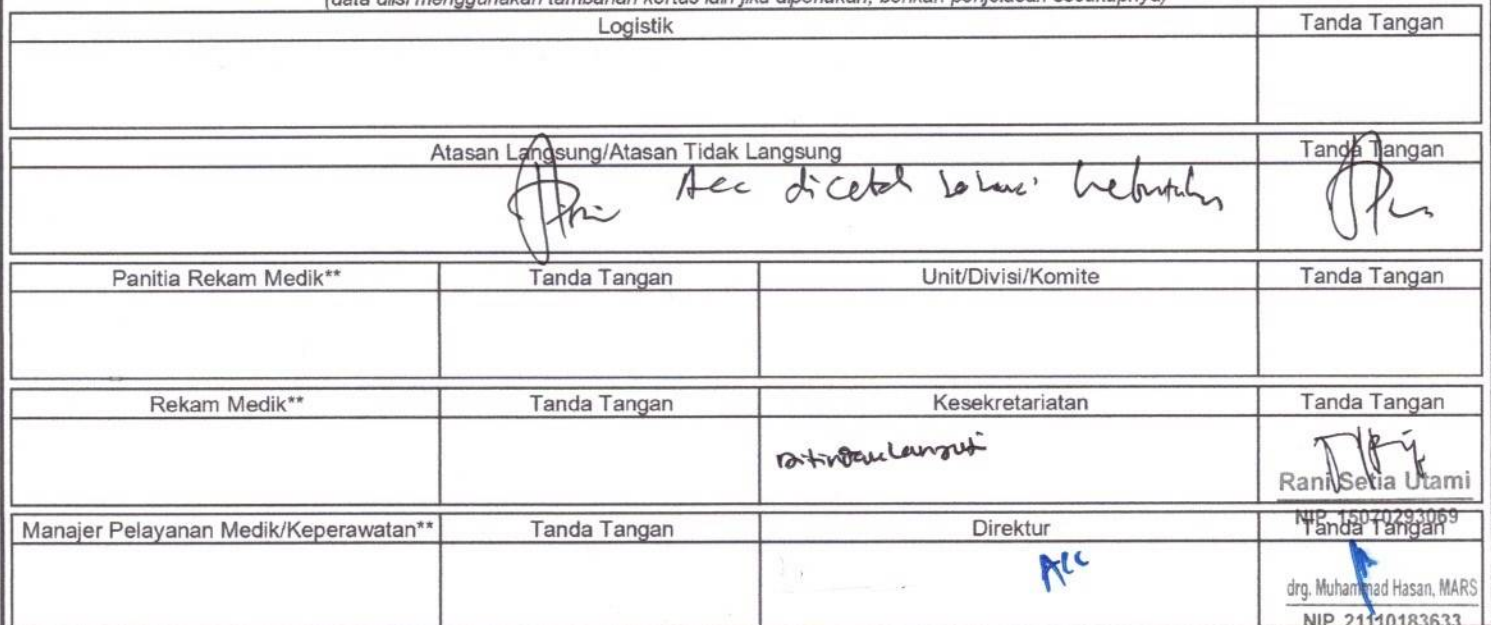 (data diisi menggunakan tambahan kertas lain jika diperlukan, berikan penjelasan secukupnya)
Logistik Tanda Tangan
Atasan Langsung/Atasan Tidak Langsung Tanda Tangan
Acc dicetak sesuai kebutuhan
Panitia Rekam Medik** Tanda Tangan Unit/Divisi/Komite Tanda Tangan
Rekam Medik** Tanda Tangan Kesekretariatan Tanda Tangan
Ditindaklanjuti
Rani Setia Utami
NIP. 15070293069
Manajer Pelayanan Medik/Keperawatan** Tanda Tangan Direktur Tanda Tangan
Acc
drg. Muhammad Hasan, MARS
NIP. 21110183633